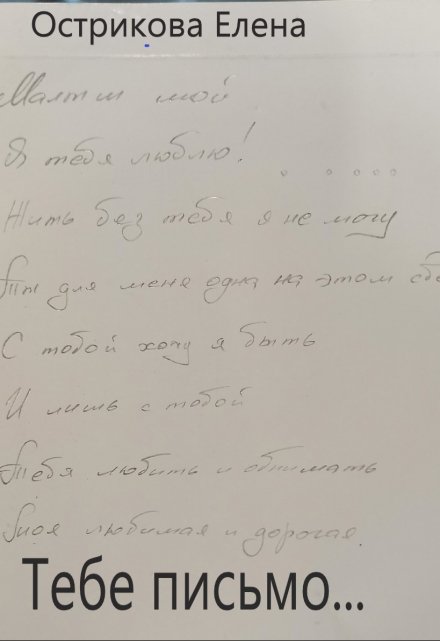 Острикова Елена
мой
Я тебя люблю! . . . . . .
Жить без тебя я не могу
для меня одна на этом
С тобой хочу я быть
И лишь с тобой
Тебя любить и обнимать
Моя любимая и дорогая.
Тебе письмо...